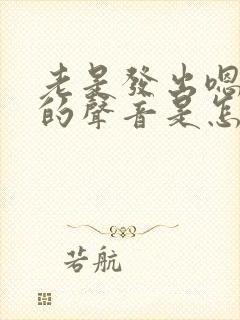 老是發出嗯
的聲音是怎
若航